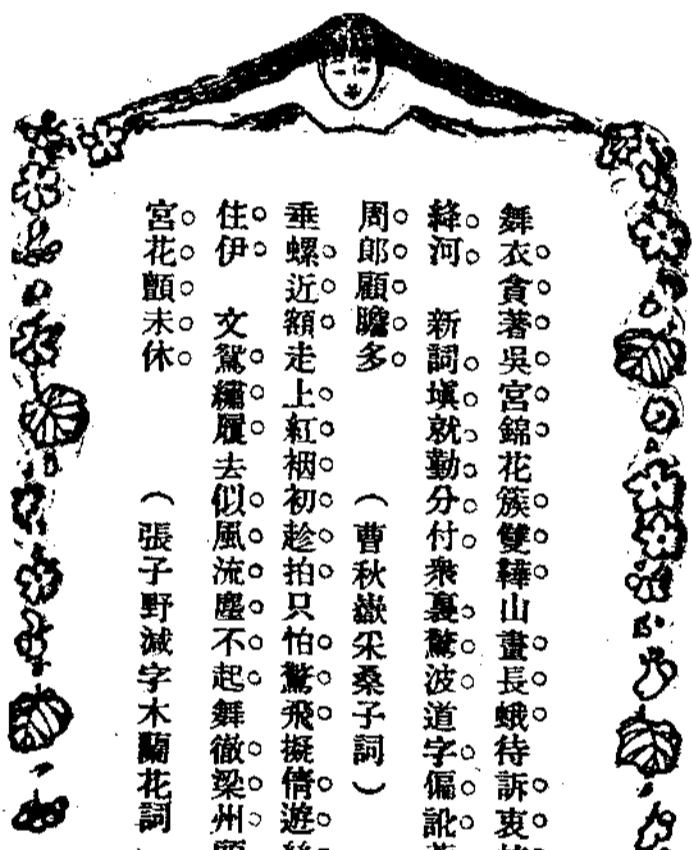 舞衣貪著吳宮錦花簇雙鞾山畫長蛾待訴衷
絳河　新詞塡就勤分付衆裏驚波道字偏訛
周郎顧瞻多　（曹秋嶽采桑子詞）
垂螺近額走上紅裀初趁拍只怕驚飛擬倩遊絲
住伊　文鴛繡履去似風流塵不起舞徹梁州
宮花顫未休　（張子野減字木蘭花詞